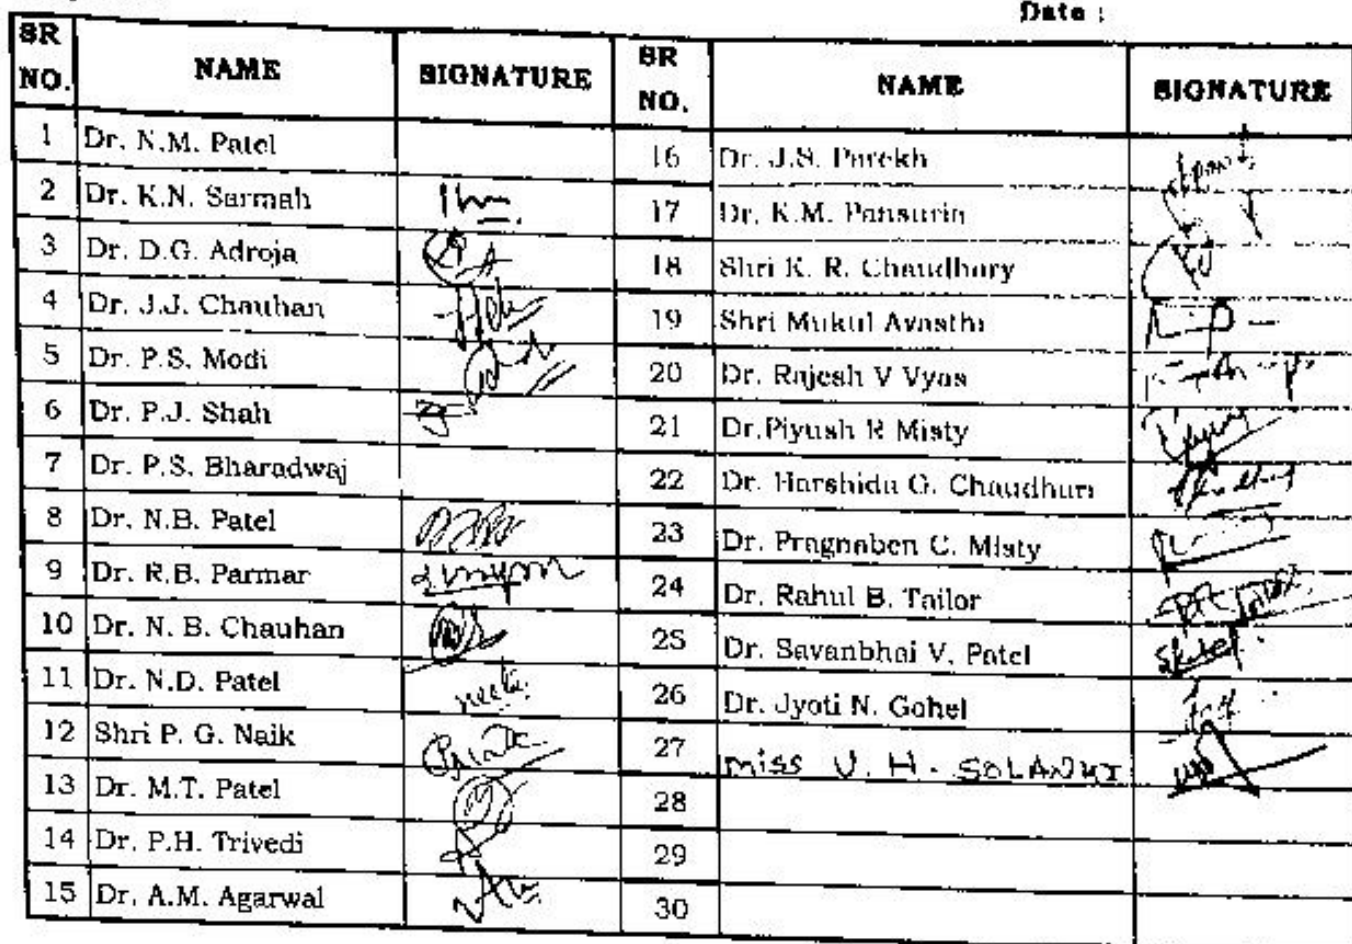 Date :
SR NO. NAME SIGNATURE SR NO. NAME SIGNATURE
1 Dr. N.M. Patel 16 Dr. J.S. Parekh
2 Dr. K.N. Sarmah 17 Dr. K.M. Pansuria
3 Dr. D.G. Adroja 18 Shri K. R. Chaudhary
4 Dr. J.J. Chauhan 19 Shri Mukul Avasthi
5 Dr. P.S. Modi 20 Dr. Rajesh V Vyas
6 Dr. P.J. Shah 21 Dr.Piyush R Misty
7 Dr. P.S. Bharadwaj 22 Dr. Harshida G. Chaudhari
8 Dr. N.B. Patel 23 Dr. Pragnaben C. Misty
9 Dr. R.B. Parmar 24 Dr. Rahul B. Tailor
10 Dr. N. B. Chauhan 25 Dr. Savanbhai V. Patel
11 Dr. N.D. Patel 26 Dr. Jyoti N. Gohel
12 Shri P. G. Naik 27 Miss U. H. SOLANKI
13 Dr. M.T. Patel 28
14 Dr. P.H. Trivedi 29
15 Dr. A.M. Agarwal 30